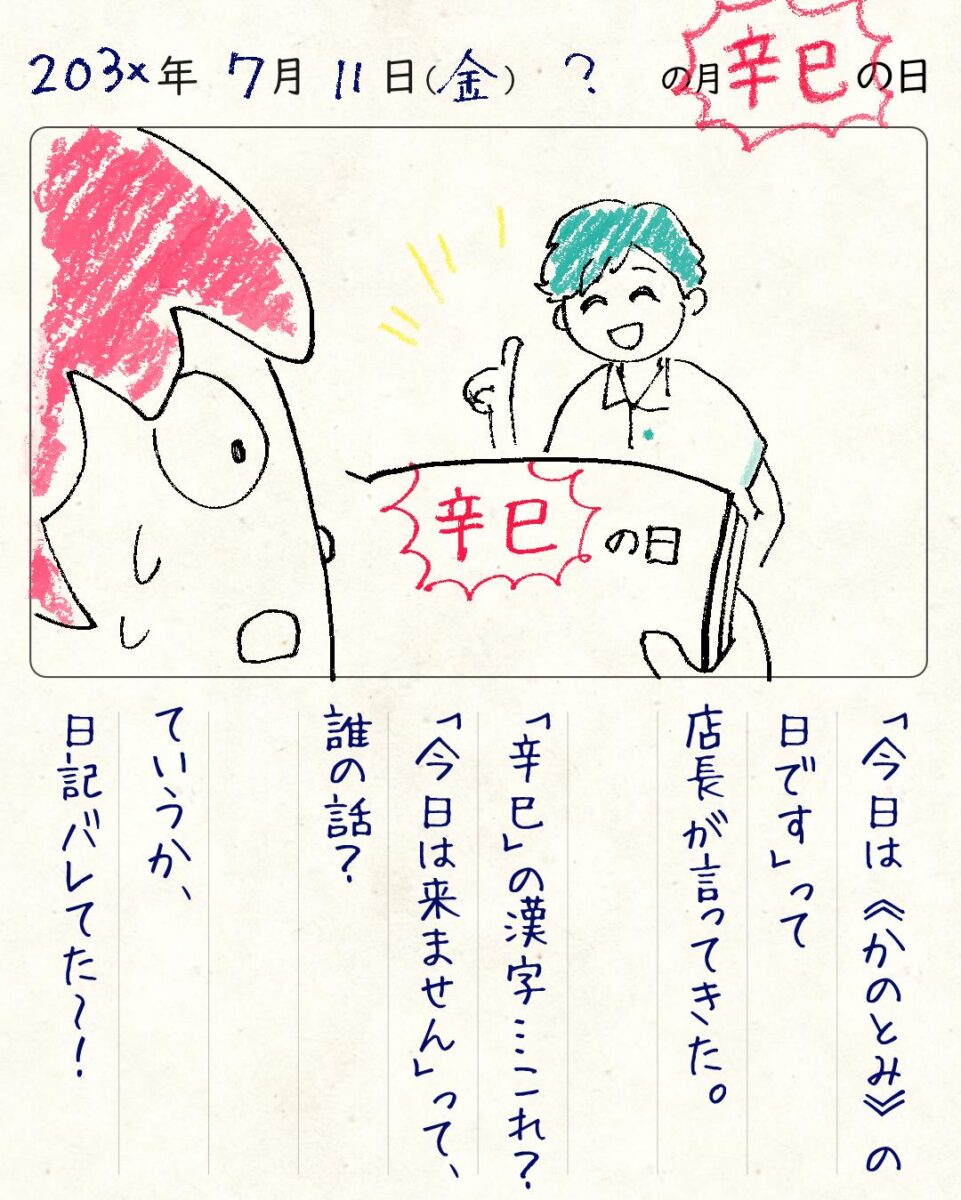 203x年 7月 11日(金) ? の月 辛巳の日
辛巳の日
「今日は《かのとみ》の
日です」って
店長が言ってきた。
「辛巳」の漢字…これ?
「今日は来ません」って、
誰の話?
ていうか、
日記バレてた〜!